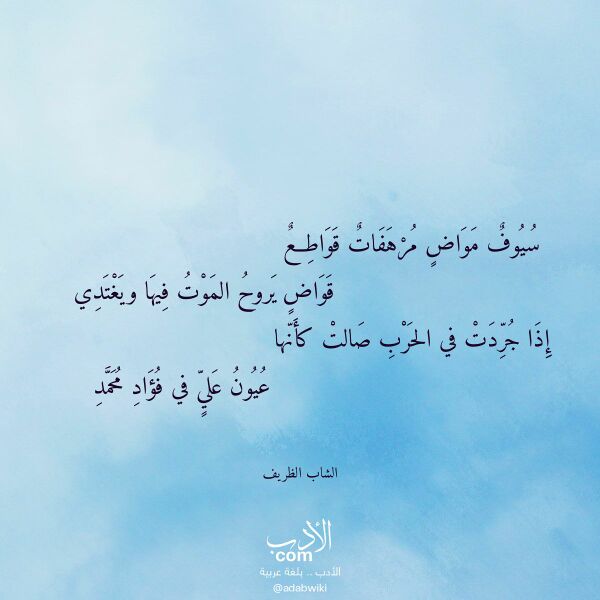 سُيُوفٌ مَوَاضٍ مُرْهَفَاتٌ قَوَاطِعٌ
قَوَاضٍ يَروحُ المَوْتُ فِيهَا ويَغْتَدِي
إِذَا جُرِّدَتْ في الحَرْبِ صَالتْ كأَنّها
عُيُونُ عَليٍّ في فُؤَادِ مُحَمَّدِ
الشاب الظريف
الأدب
com
الأدب .. بلغة عربية
@adabwiki